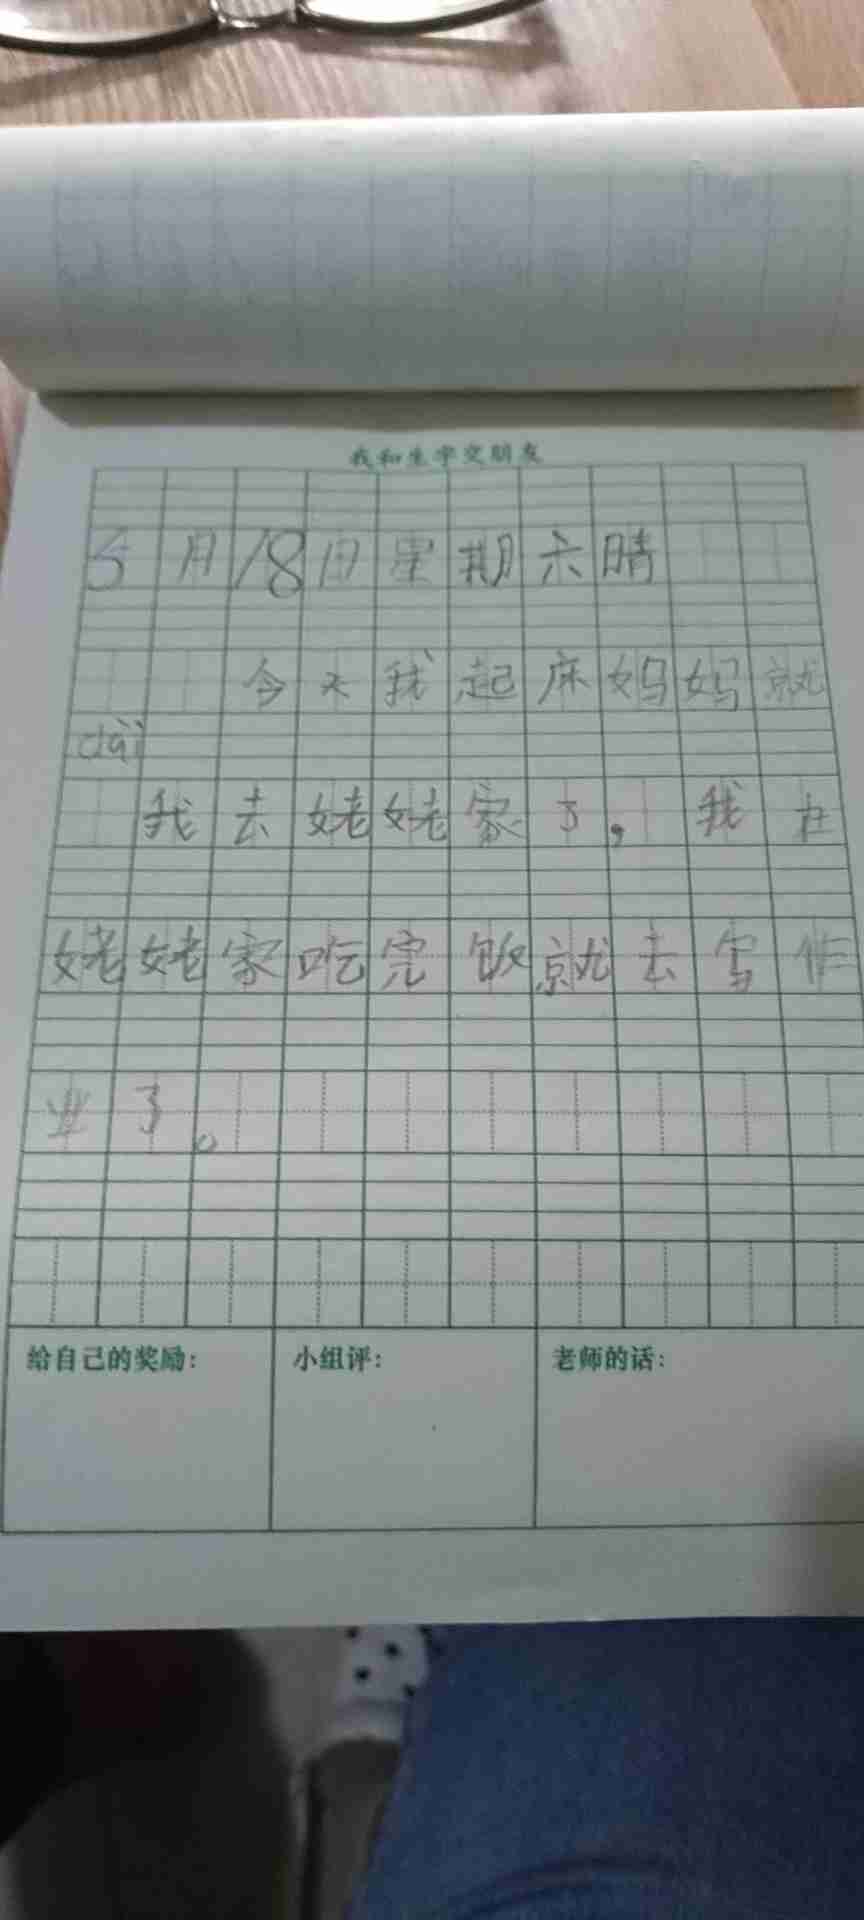 我和生字交朋友
5月18日星期六晴
今天我起床妈妈就
dài
我去姥姥家了,我在
姥姥家吃完饭就去写作
业了。
给自己的奖励: 小组评: 老师的话: